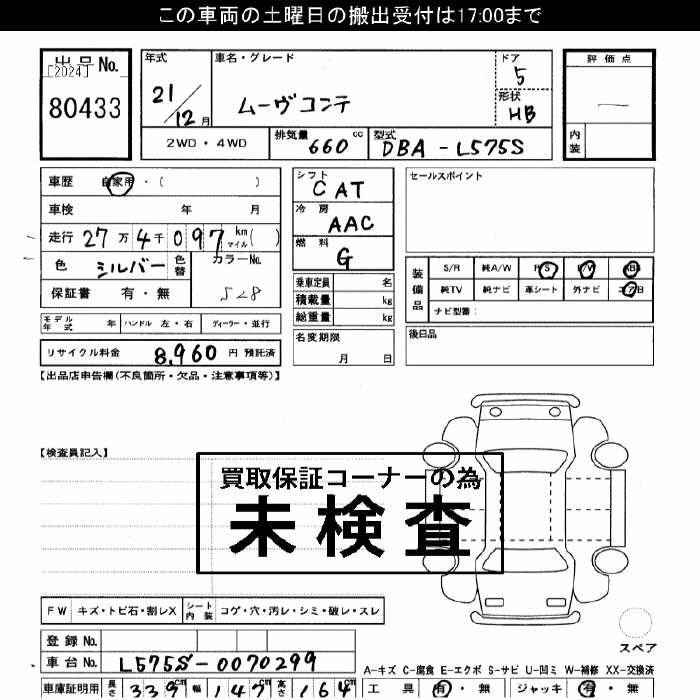 この車両の土曜日の搬出受付は17:00まで
出品No.
[2024]
80433
年式
21/12月
車名・グレード
ムーヴコンテ
ドア
5
形状
HB
評価点
—
内装
2WD・4WD
排気量
660cc
型式
DBA-L575S
車歴 自家用・( )
車検 年 月
走行 27万4千097km マイル( )
色 シルバー 色替 カラーNo.
528
保証書 有・無
シフト
CAT
冷房
AAC
燃料
G
セールスポイント
乗車定員 名
積載量 kg
総重量 kg
装備品
S/R 純A/W P/S P/W ABS
純TV 純ナビ 革シート 外ナビ エアB
ナビ型番:
モデル年式 年 ハンドル 左・右 ディーラー・並行
名変期限
月 日
後日品
リサイクル料金 8,960 円 預託済
【出品店申告欄(不良箇所・欠品・注意事項等)】
【検査員記入】
買取保証コーナーの為
未検査
FW キズ・トビ石・割レX シート内装 コゲ・穴・汚レ・シミ・破レ・スレ
スペア
登録No.
車台No. L575S-0070299
A-キズ C-腐食 E-エクボ S-サビ U-凹ミ W-補修 XX-交換済
車庫証明用 長さ 339cm 幅 147cm 高さ 164cm
工具 有・無 ジャッキ 有・無